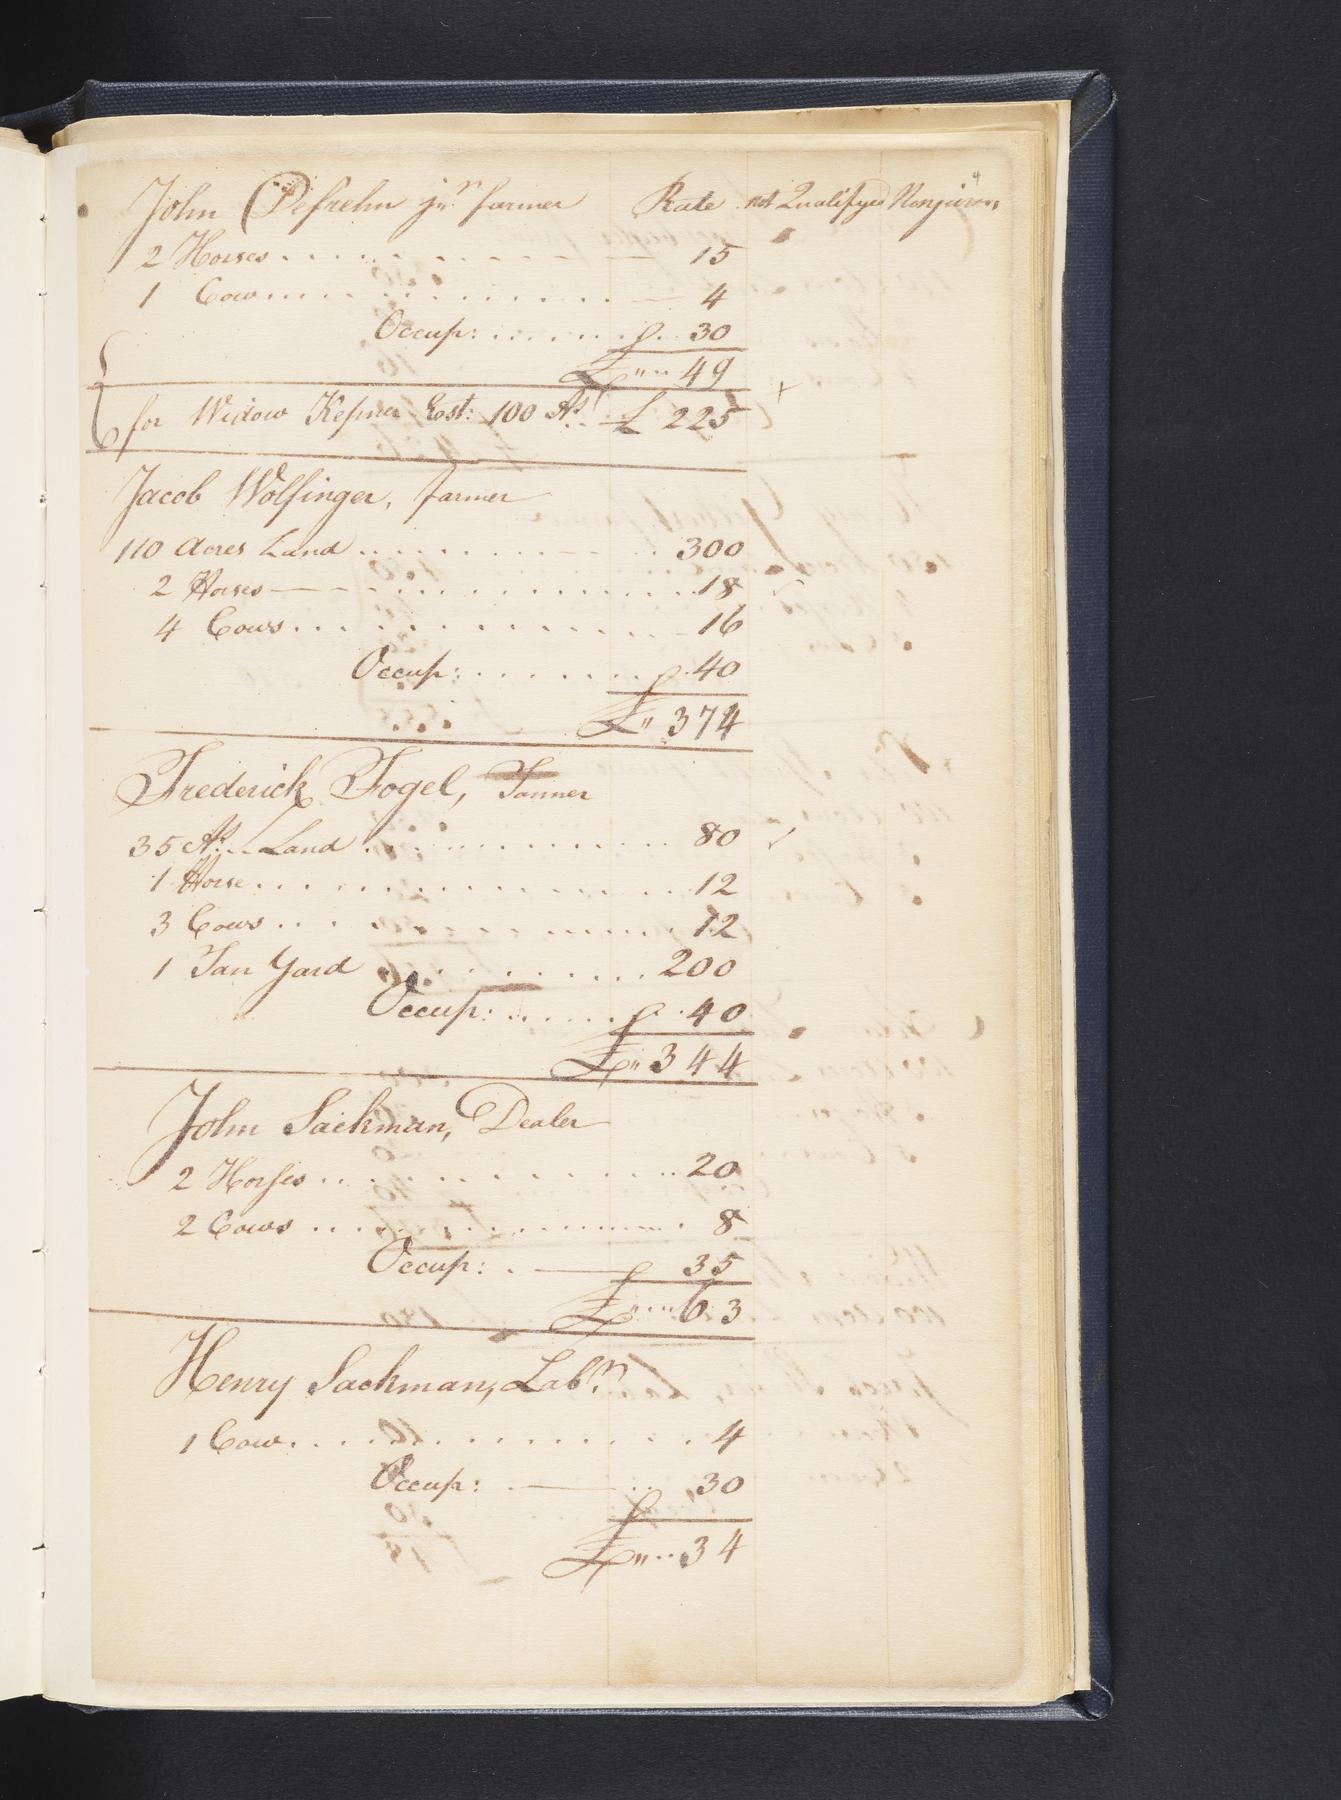 4
John Defrehn junr farmer Rate not Qualifyed Nonjurors
2 Horses 15
1 Cow 4
Occup: 30
£ 49
for Widow Kepner Est: 100 As £ 225
Jacob Wolfinger, farmer
110 Acres Land 300
2 Horses 18
4 Cows 16
Occup: 40
£ 374
Frederick Fogel, Tanner
35 As Land 80
1 Horse 12
3 Cows 12
1 Tan Yard 200
Occup: 40
£ 344
John Sackman, Dealer
2 Horses 20
2 Cows 8
Occup: 35
£ 63
Henry Sackman, Labr
1 Cow 4
Occup: 30
£ 34